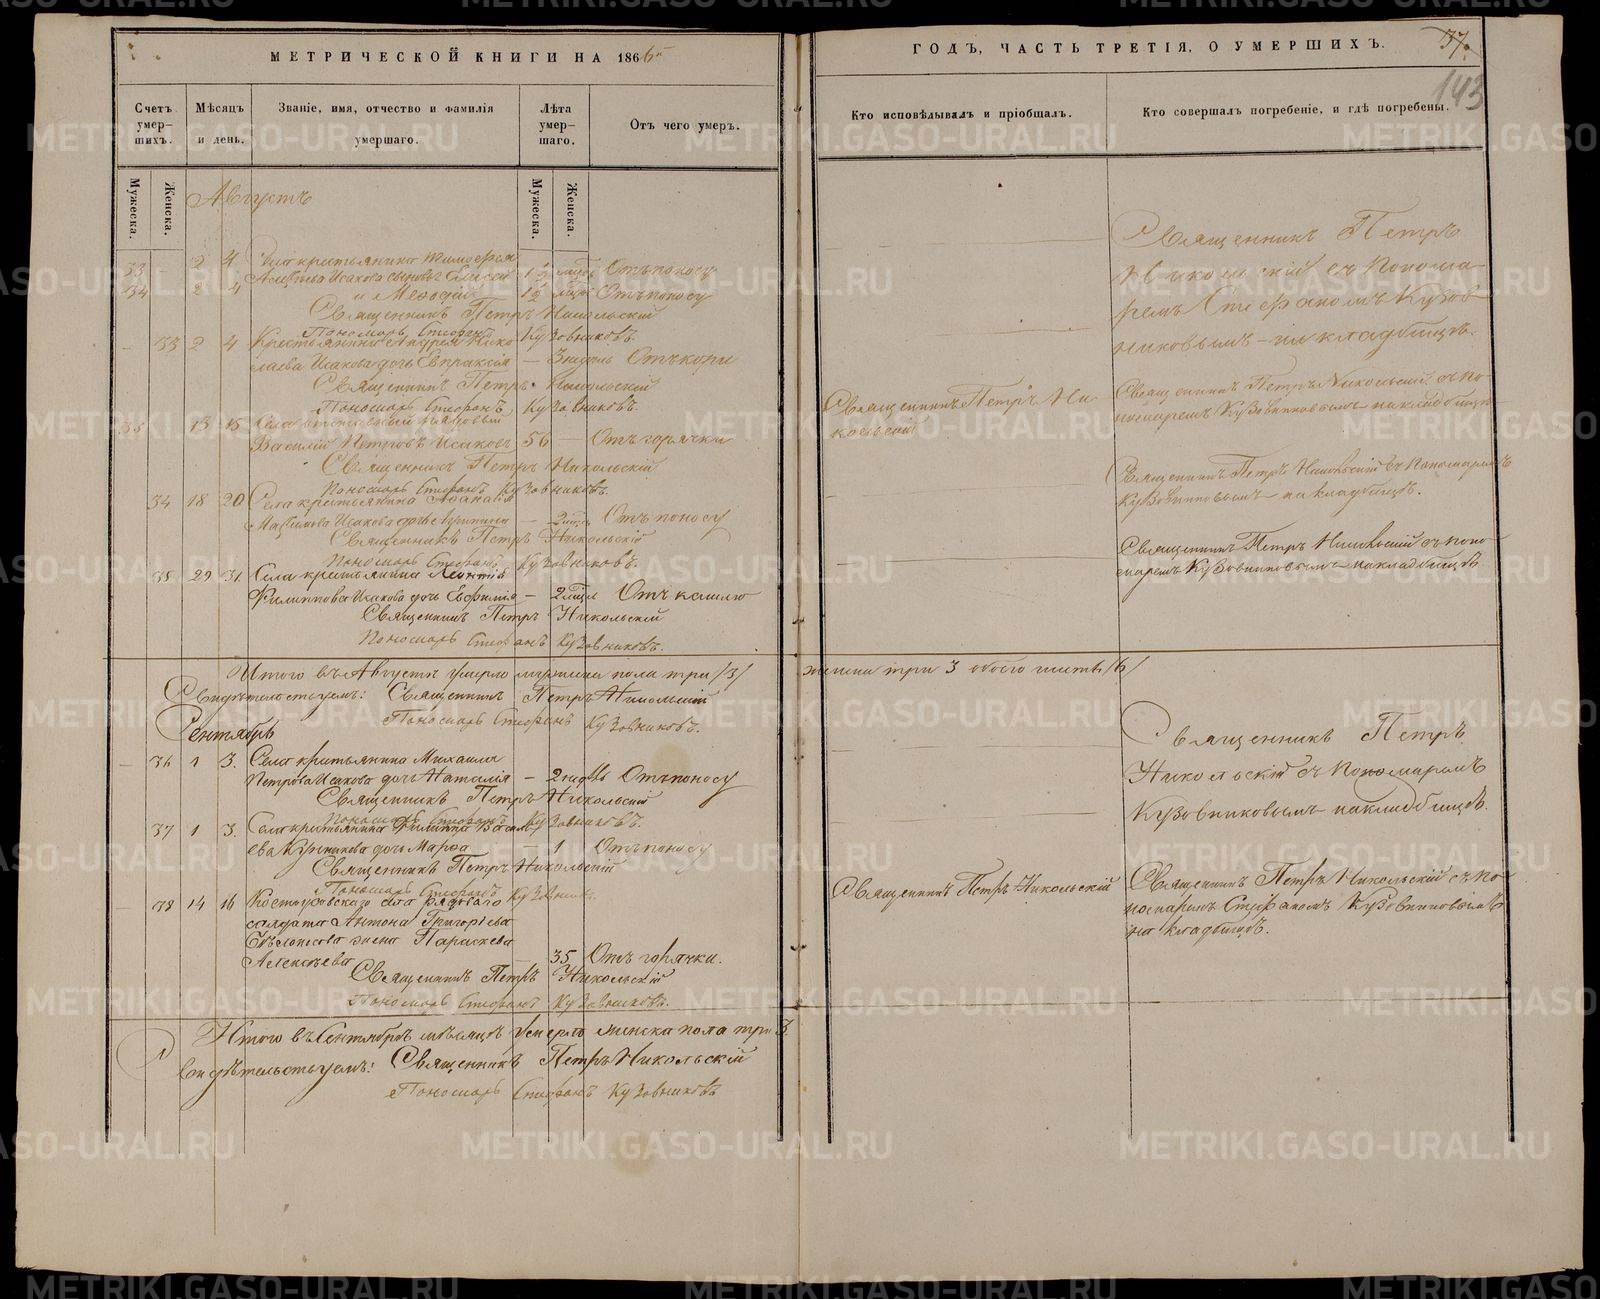 МЕТРИЧЕСКОЙ КНИГИ НА 1865
ГОДЪ, ЧАСТЬ ТРЕТІЯ, О УМЕРШИХЪ.
37.
143
Счетъ умер-шихъ.
Мѣсяцъ и день.
Званіе, имя, отчество и фамилія умершаго.
Лѣта умер-шаго.
Отъ чего умеръ.
Кто исповѣдывалъ и пріобщалъ.
Кто совершалъ погребеніе, и гдѣ погребены.
Мужеска.
Женска.
Мужеска.
Женска.
Августъ
33 2 4 Села крестьянина Тимофея
Исакова сыновья Елисей 1½ мѣсяц Отъ поносу
34 2 4 и Меѳодій 1½ Отъ поносу
Священникъ Петръ Никольскій
Пономарь Стефанъ Кузовниковъ.
Священникъ Петръ
Никольскій съ понома-
ремъ Стефаномъ Кузов
никовымъ на кладбищѣ.
33 2 4 Крестьянина Андрея Нико
лаева Исакова дочь Евпраксія — 3 недѣль Отъ кори
Священникъ Петръ Никольскій
Пономарь Стефанъ Кузовниковъ.
Священникъ Петръ Никольскій съ по-
номаремъ Кузовниковымъ на кладбищѣ
35 13 15 Села рядовый
Василій Петровъ Исаковъ 56 — Отъ горячки
Священникъ Петръ Никольскій
Пономарь Стефанъ Кузовниковъ.
Священникъ Петръ Ни-
кольскій
Священникъ Петръ Никольскій съ пономаремъ
Кузовниковымъ на кладбищѣ.
34 18 20 Села крестьянина
Максимова Исакова дочь — 2 Отъ поносу
Священникъ Петръ Никольскій
Пономарь Стефанъ Кузовниковъ.
Священникъ Петръ Никольскій съ поно-
маремъ Кузовниковымъ на кладбищѣ
35 29 31 Села крестьянина Леонтія
Филиппова Исакова дочь Евфимія — 2 Отъ кашлю
Священникъ Петръ Никольскій
Пономарь Стефанъ Кузовниковъ.
Итого въ Августѣ умерло мужеска пола три /3/ женска три 3 обоего шесть /6/
Свидѣтельствуемъ: Священникъ Петръ Никольскій
Пономарь Стефанъ Кузовниковъ.
Сентябрь
36 1 3. Села крестьянина Михаила
Петрова Исакова дочь Наталія — 2 Отъ поносу
Священникъ Петръ Никольскій
Пономарь Стефанъ Кузовниковъ.
Священникъ Петръ
Никольскій съ пономаремъ
Кузовниковымъ на кладбищѣ.
37 1 3. Села крестьянина Филиппа Василь-
ева дочь Марѳа — 1 Отъ поносу
Священникъ Петръ Никольскій
Пономарь Стефанъ Кузовниковъ.
38 14 16 села рядоваго
солдата Антона Григорьева
жена Параскева
Алексѣева — 35 Отъ горячки.
Священникъ Петръ Никольскій
Пономарь Стефанъ Кузовниковъ.
Священникъ Петръ Никольскій
Священникъ Петръ Никольскій съ по-
номаремъ Стефаномъ Кузовниковымъ
на кладбищѣ.
Итого въ Сентябрѣ мѣсяцѣ умерло женска пола три 3.
Свидѣтельствуемъ: Священникъ Петръ Никольскій
Пономарь Стефанъ Кузовниковъ
METRIKI.GASO-URAL.RU